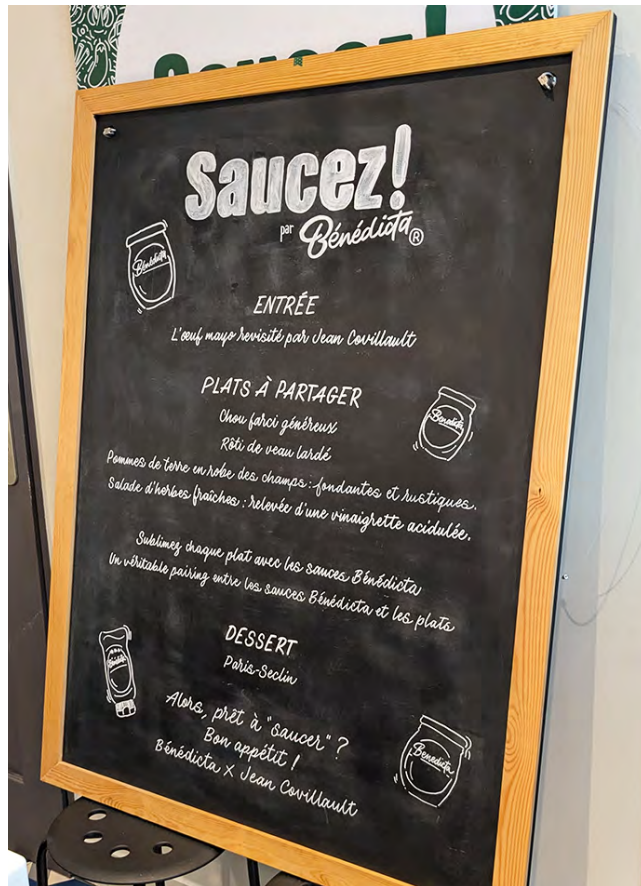 Saucez!
Saucez!
par Bénédicta®
Bénédicta
ENTRÉE
L'œuf mayo revisité par Jean Covillault
PLATS À PARTAGER
Chou farci généreux
Bénédicta
Rôti de veau lardé
Pommes de terre en robe des champs : fondantes et rustiques.
Salade d'herbes fraîches : relevée d'une vinaigrette acidulée.
Sublimez chaque plat avec les sauces Bénédicta
Un véritable pairing entre les sauces Bénédicta et les plats
DESSERT
Bénédicta
Paris-Seclin
Alors, prêt à "saucer" ?
Bon appétit !
Bénédicta
Bénédicta X Jean Covillault